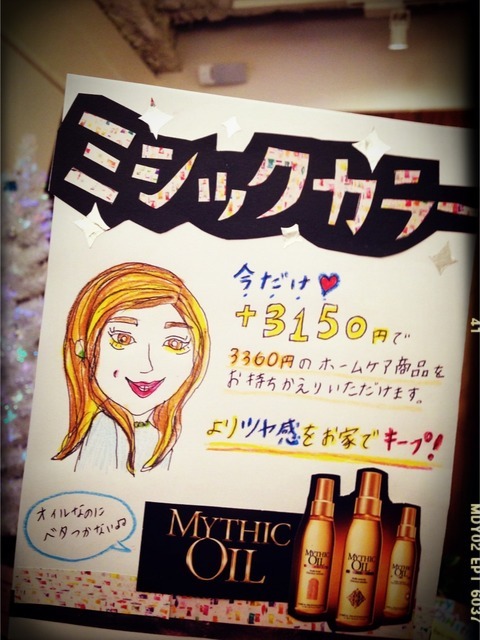 ミシックカラー
今だけ
+3150円で
3360円のホームケア商品を
お持ちかえりいただけます。
よりツヤ感をお家でキープ!
オイルなのに
ベタつかない
MYTHIC
OIL
MYTHIC
OIL
MYTHIC
OIL
MYTHIC
OIL
41
MDY02 EP1 6037